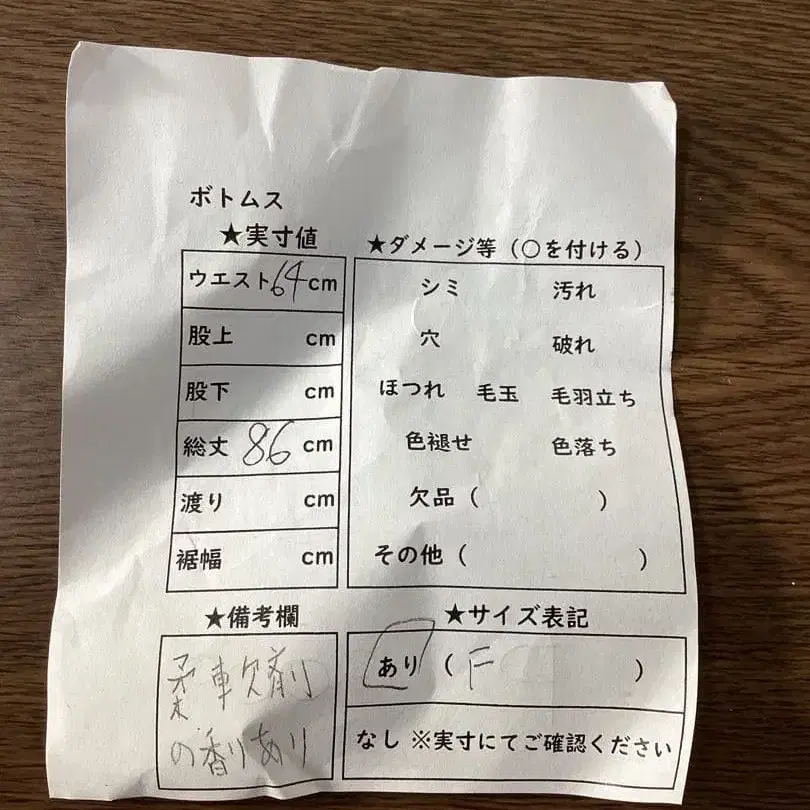 ボトムス
★実寸値
ウエスト64cm
股上 cm
股下 cm
総丈 86 cm
渡り cm
裾幅 cm
★ダメージ等（○を付ける）
シミ 汚れ
穴 破れ
ほつれ 毛玉 毛羽立ち
色褪せ 色落ち
欠品（ ）
その他（ ）
★備考欄
柔軟剤
の香りあり
★サイズ表記
あり（ F ）
なし ※実寸にてご確認ください